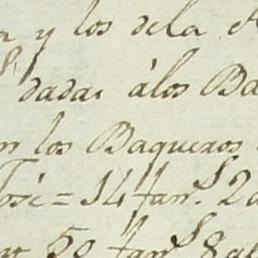 y los dela
dadas álos Ba
los Baqueros
José = 14 fan.s 2
50 fan.s 8